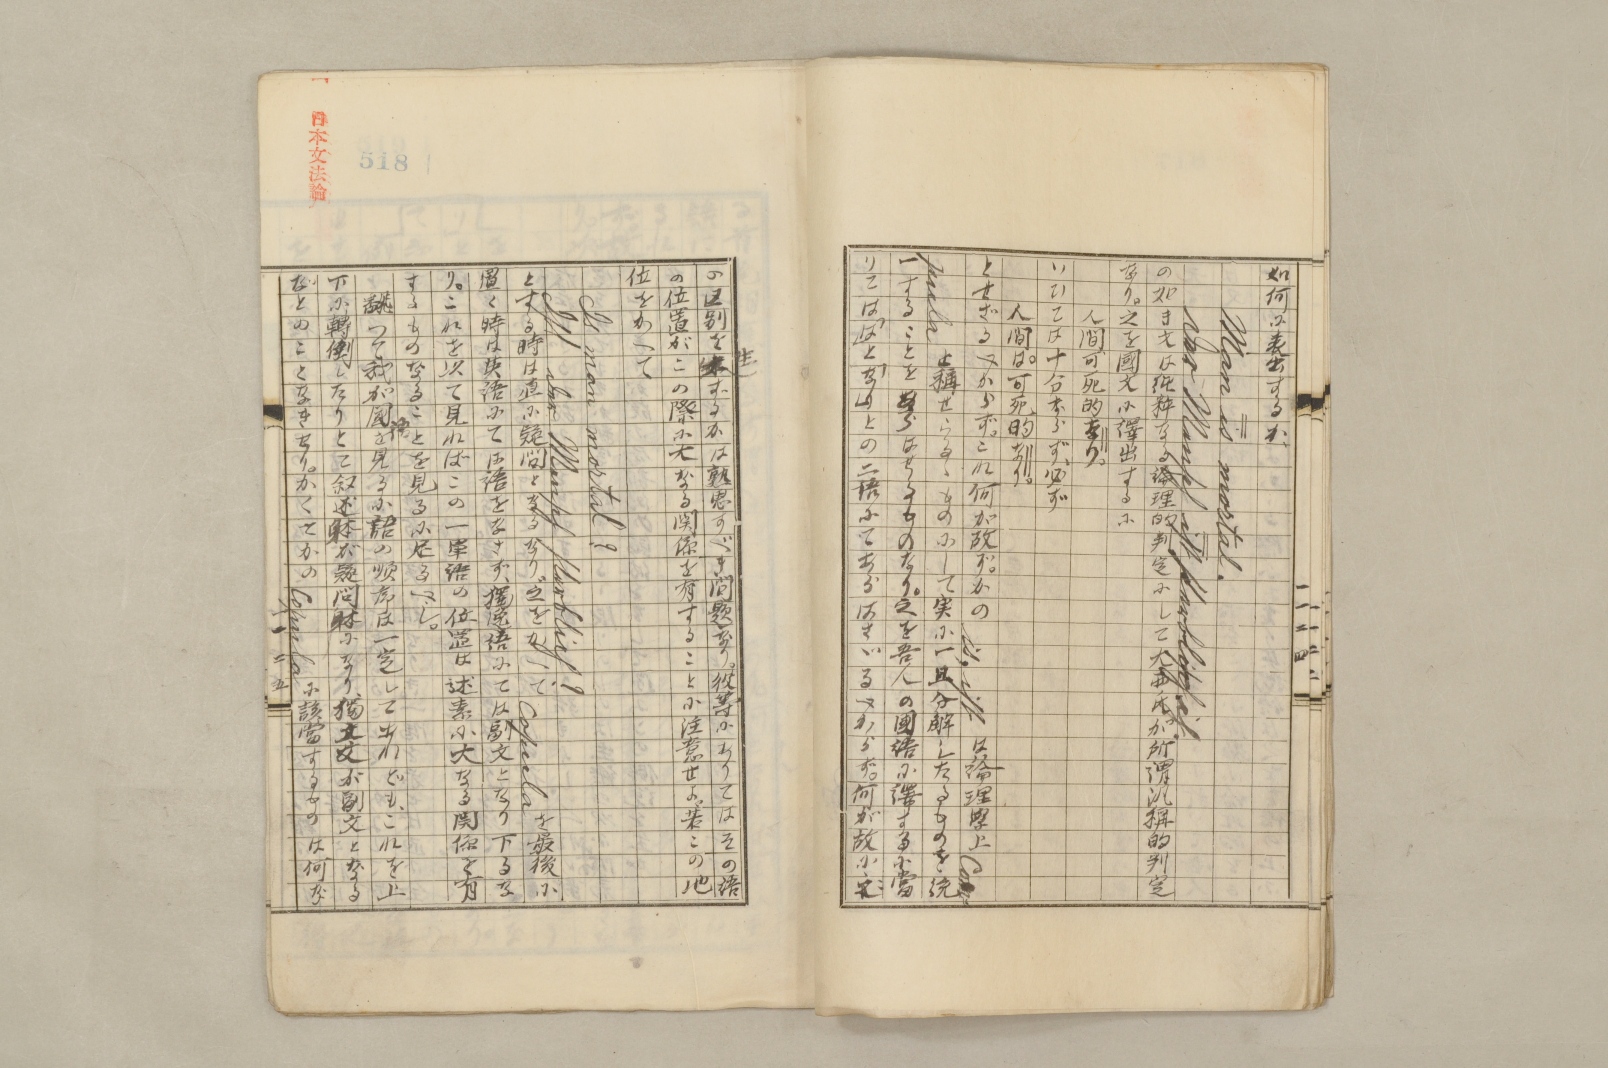 如何に表出するか
Man is mortal.
Der Mensch ist sterblich.
の如き文は純粋なる論理的判定にして大西氏が所謂汎称的判定
なり。之を國文に譯出するに
人間可死的なり。
いひては十分ならず、必ず
人間は。可死的なり。
とせざるべからず。これ何が故ぞ。かの is, ist は論理學上 Co
pula と稱せらるゝものにして実に一旦分解したるものを統
一することをあらはせるものなり。之を吾人の國語に譯する当
りては「は」と「なり」との二語にてあらはさゞるべからず。何が故に
二一二四
日本文法論
518
の区別を生ずるかは熟思すべき問題なり。彼等にありてはその語
の位置がこの際に大なる関係を有することに注意せよ。若この地
位をかへて
Is man mortal?
Ist der Mensch sterblich?
とする時は直に疑問となるなり。之をかへて Copula を最後に
置く時は英語にては語をなさず、獨逸語にては副文となり下るな
り。これを以て見ればこの一単語の位置は述素に大なる関係を有
するものなることを見るに足るべし。
飜つて我が國語を見るに語の順序は一定して出れども、これを上
下に轉倒したりとて叙述躰が疑問躰になり、獨立文が副文となる
などのことなきなり。かくてかの Copula に該當するものは何な
二一二五